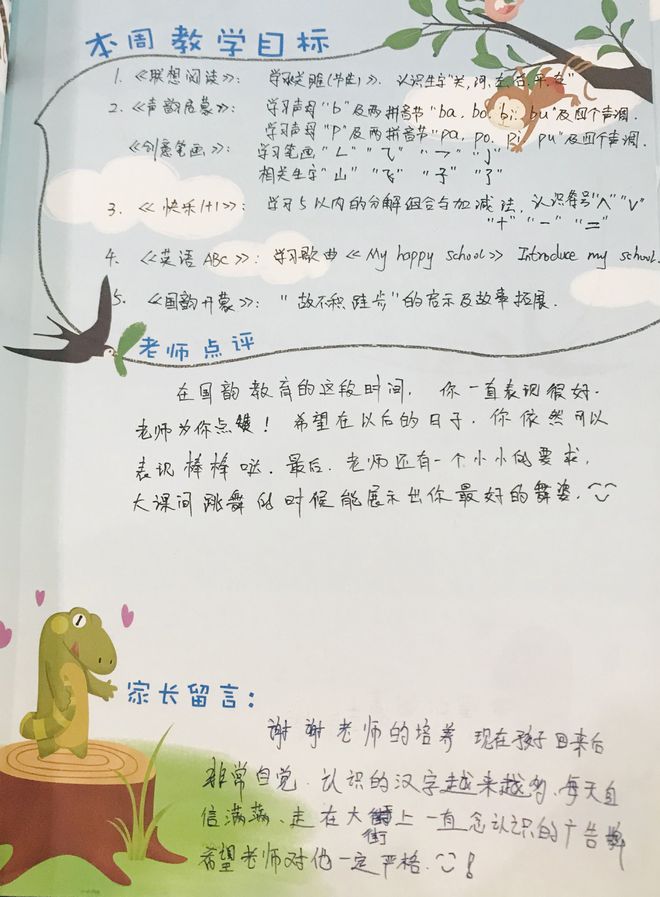 本周教学目标
1. 《联想阅读》： 学习关雎(节选)》. 认识生字"关,河,左,右,乎,在"
2. 《声韵启蒙》： 学习声母"b"及两拼音节"ba. bo. bi. bu"及四个声调.
学习声母"p"及两拼音节"pa. po. pi. pu"及四个声调.
《创意笔画》： 学习笔画"ㄥ" "乁" "乛" "亅"
相关生字"山" "飞" "子" "了"
3. 《快乐1+1》： 学习5以内的分解组合与加减法. 认识符号"∧""∨"
"+" "-" "="
4. 《英语ABC》： 学习歌曲《My happy school》 Introduce my school.
5. 《国韵开蒙》： "故不积跬步"的启示及故事拓展.
老师点评
在国韵教育的这段时间, 你一直表现很好.
老师为你点赞! 希望在以后的日子. 你依然可以
表现棒棒哒. 最后. 老师还有一个小小的要求.
大课间跳舞的时候能展示出你最好的舞姿.
家长留言：
谢谢老师的培养 现在孩子回来后
非常自觉. 认识的汉字越来越多. 每天自
信满满. 走在大街上一直念认识的广告牌
希望老师对他一定严格. !